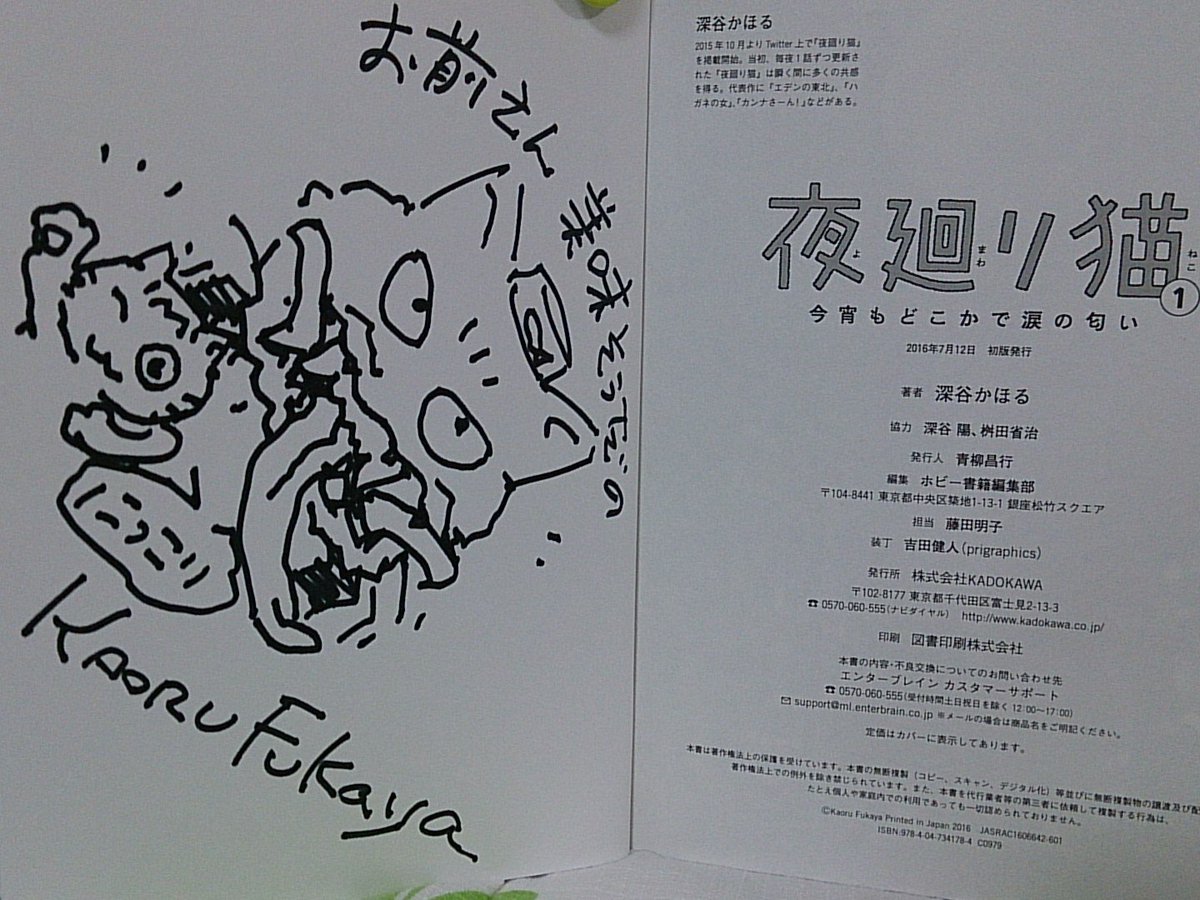 お前さん
美味そうだの
にっこり
KAORU FUKAYA
深谷かほる
2015年10月よりTwitter上で『夜廻り猫』
を掲載開始。当初、毎夜1話ずつ更新さ
れた『夜廻り猫』は瞬く間に多くの共感
を得る。代表作に『エデンの東北』、『ハ
ガネの女』、『カンナさーん!』などがある。
夜廻り猫
よ まわ ねこ
1
今宵もどこかで涙の匂い
2016年7月12日 初版発行
著者 深谷かほる
協力 深谷 陽、桝田省治
発行人 青柳昌行
編集 ホビー書籍編集部
〒104-8441 東京都中央区築地1-13-1 銀座松竹スクエア
担当 藤田明子
装丁 吉田健人(prigraphics)
発行所 株式会社KADOKAWA
〒102-8177 東京都千代田区富士見2-13-3
☎0570-060-555(ナビダイヤル) http://www.kadokawa.co.jp/
印刷 図書印刷株式会社
本書の内容・不良交換についてのお問い合わせ先
エンターブレイン カスタマーサポート
☎0570-060-555(受付時間土日祝日を除く 12:00〜17:00)
✉support@ml.enterbrain.co.jp ※メールの場合は商品名をご明記ください。
定価はカバーに表示してあります。
本書は著作権法上の保護を受けています。本書の無断複製(コピー、スキャン、デジタル化)等並びに無断複製物の譲渡及び配
著作権法上での例外を除き禁じられています。また、本書を代行業者等の第三者に依頼して複製する行為は、
たとえ個人や家庭内での利用であっても一切認められておりません。
©Kaoru Fukaya Printed in Japan 2016 JASRAC1606642-601
ISBN:978-4-04-734178-4 C0979